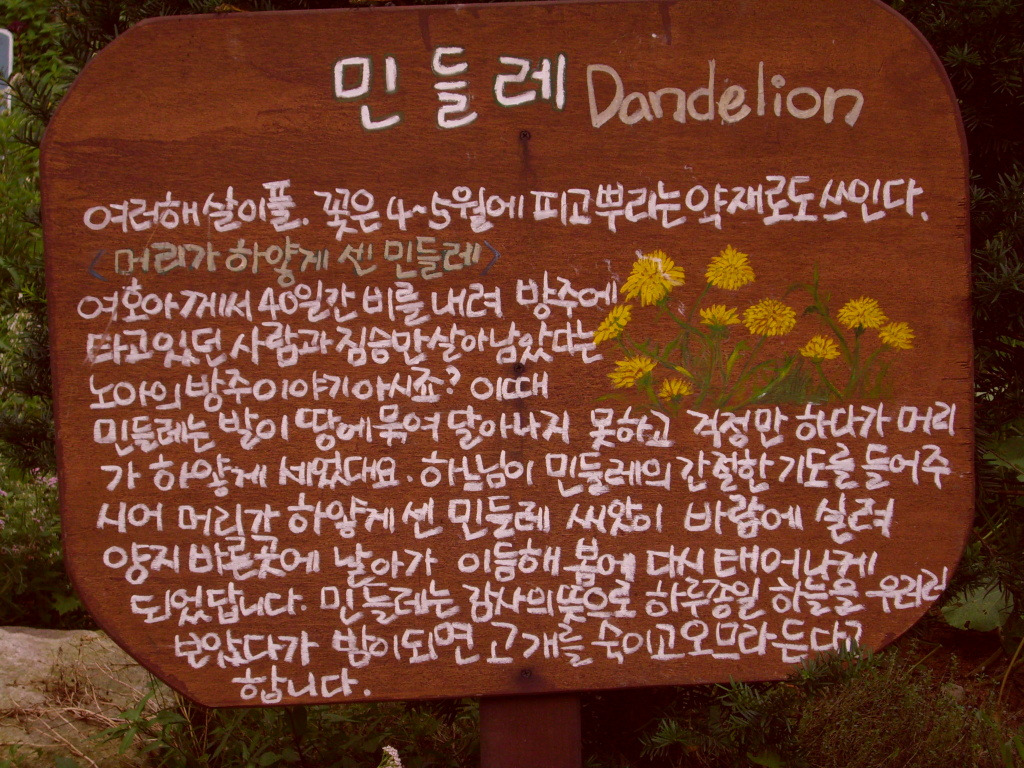 민들레 Dandelion
여러해살이풀. 꽃은 4~5월에 피고 뿌리는 약재로도 쓰인다.
<머리가 하얗게 센 민들레>
여호아께서 40일간 비를 내려 방주에
타고 있던 사람과 짐승만 살아남았다는
노아의 방주 이야기 아시죠? 이때
민들레는 발이 땅에 묶여 달아나지 못하고 걱정만 하다가 머리
가 하얗게 세었대요. 하느님이 민들레의 간절한 기도를 들어주
시어 머리가 하얗게 센 민들레 씨앗이 바람에 실려
양지 바른곳에 날아가 이듬해 봄에 다시 태어나게
되었답니다. 민들레는 감사의 뜻으로 하루종일 하늘을 우러러
보았다가 밤이 되면 고개를 숙이고 오므라든다고
합니다.